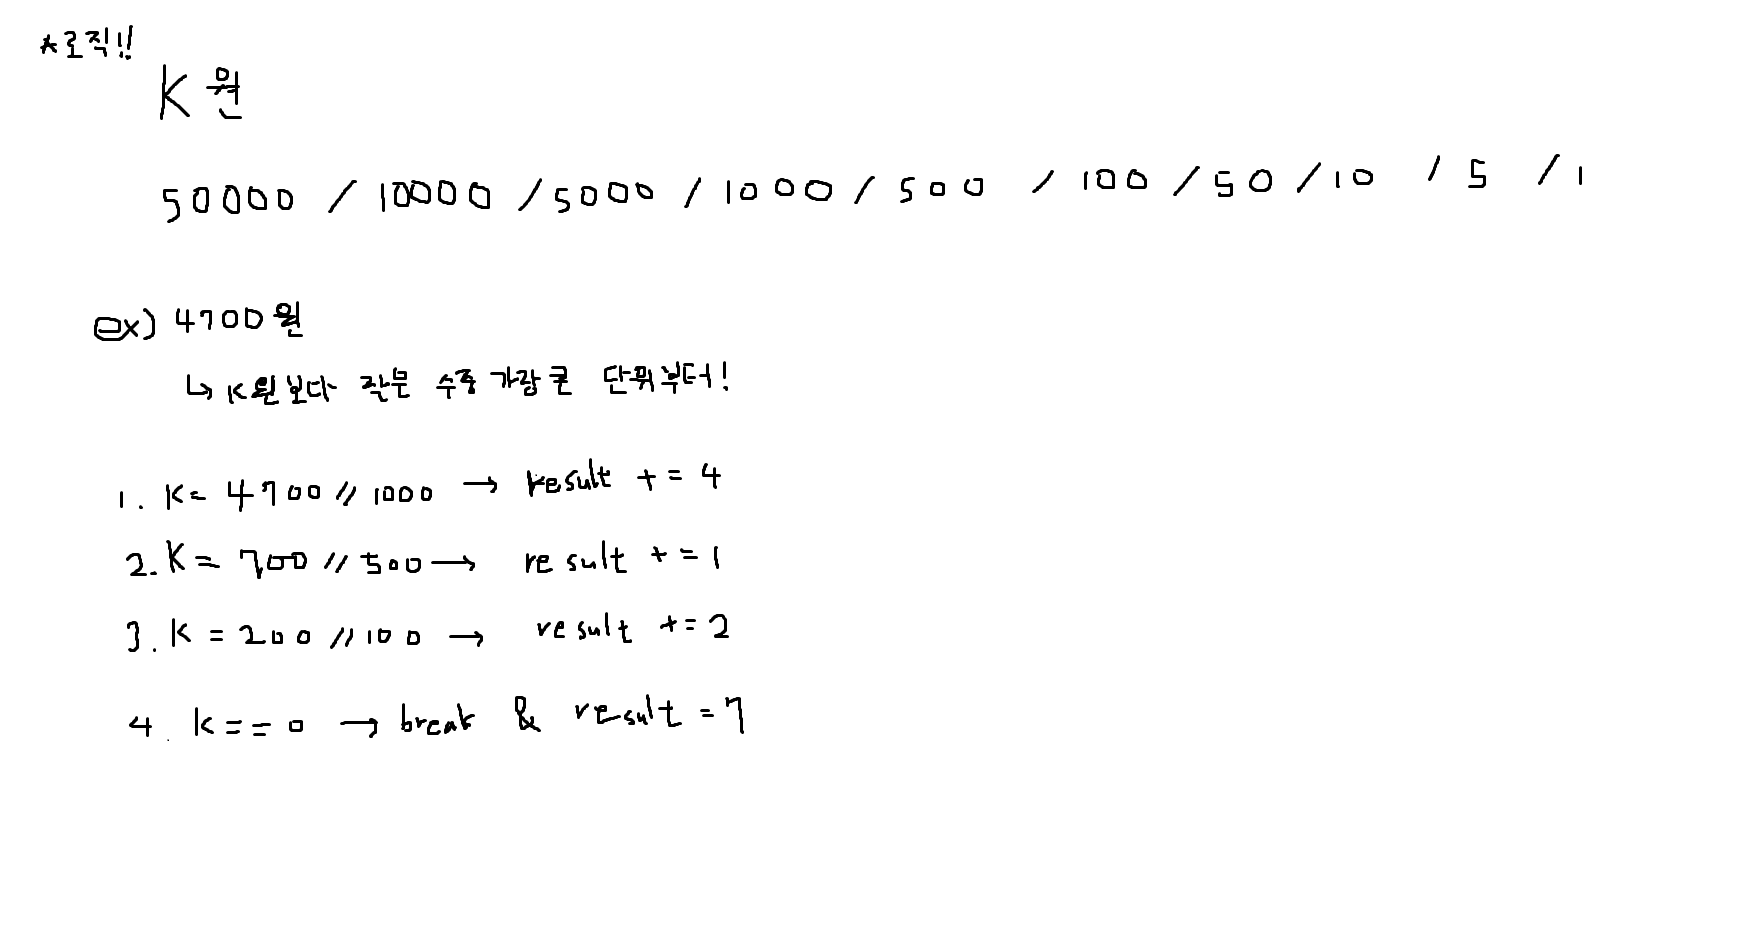 *로직!!
K원
50000 / 10000 / 5000 / 1000 / 500 / 100 / 50 / 10 / 5 / 1
ex) 4700원
↳ K원보다 작은 수중 가장 큰 단위부터!
1. K = 4700 // 1000 → result += 4
2. K = 700 // 500 → result += 1
3. K = 200 // 100 → result += 2
4. K == 0 → break & result = 7